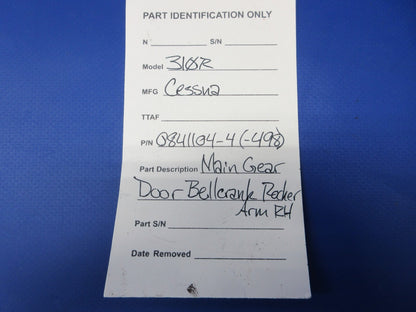 PART IDENTIFICATION ONLY
N S/N
Model 310R
MFG Cessna
TTAF
P/N 0841104-4 (-498)
Part Description Main Gear
Door Bellcrank Rocker
Arm RH
Part S/N
Date Removed